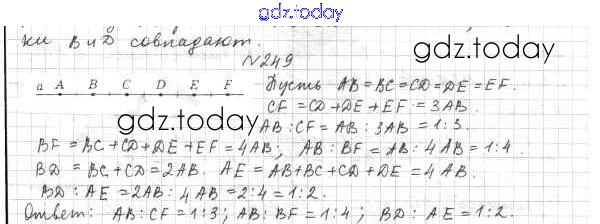 gdz.today
ки B и D совпадают.
gdz.today
N 249
a A B C D E F
Пусть AB = BC = CD = DE = EF.
CF = CD + DE + EF = 3AB.
gdz.today
AB : CF = AB : 3AB = 1 : 3.
BF = BC + CD + DE + EF = 4AB; AB : BF = AB : 4AB = 1 : 4.
BD = BC + CD = 2AB. AE = AB + BC + CD + DE = 4AB.
BD : AE = 2AB : 4AB = 2 : 4 = 1 : 2.
gdz.today
Ответ: AB : CF = 1 : 3; AB : BF = 1 : 4; BD : AE = 1 : 2.